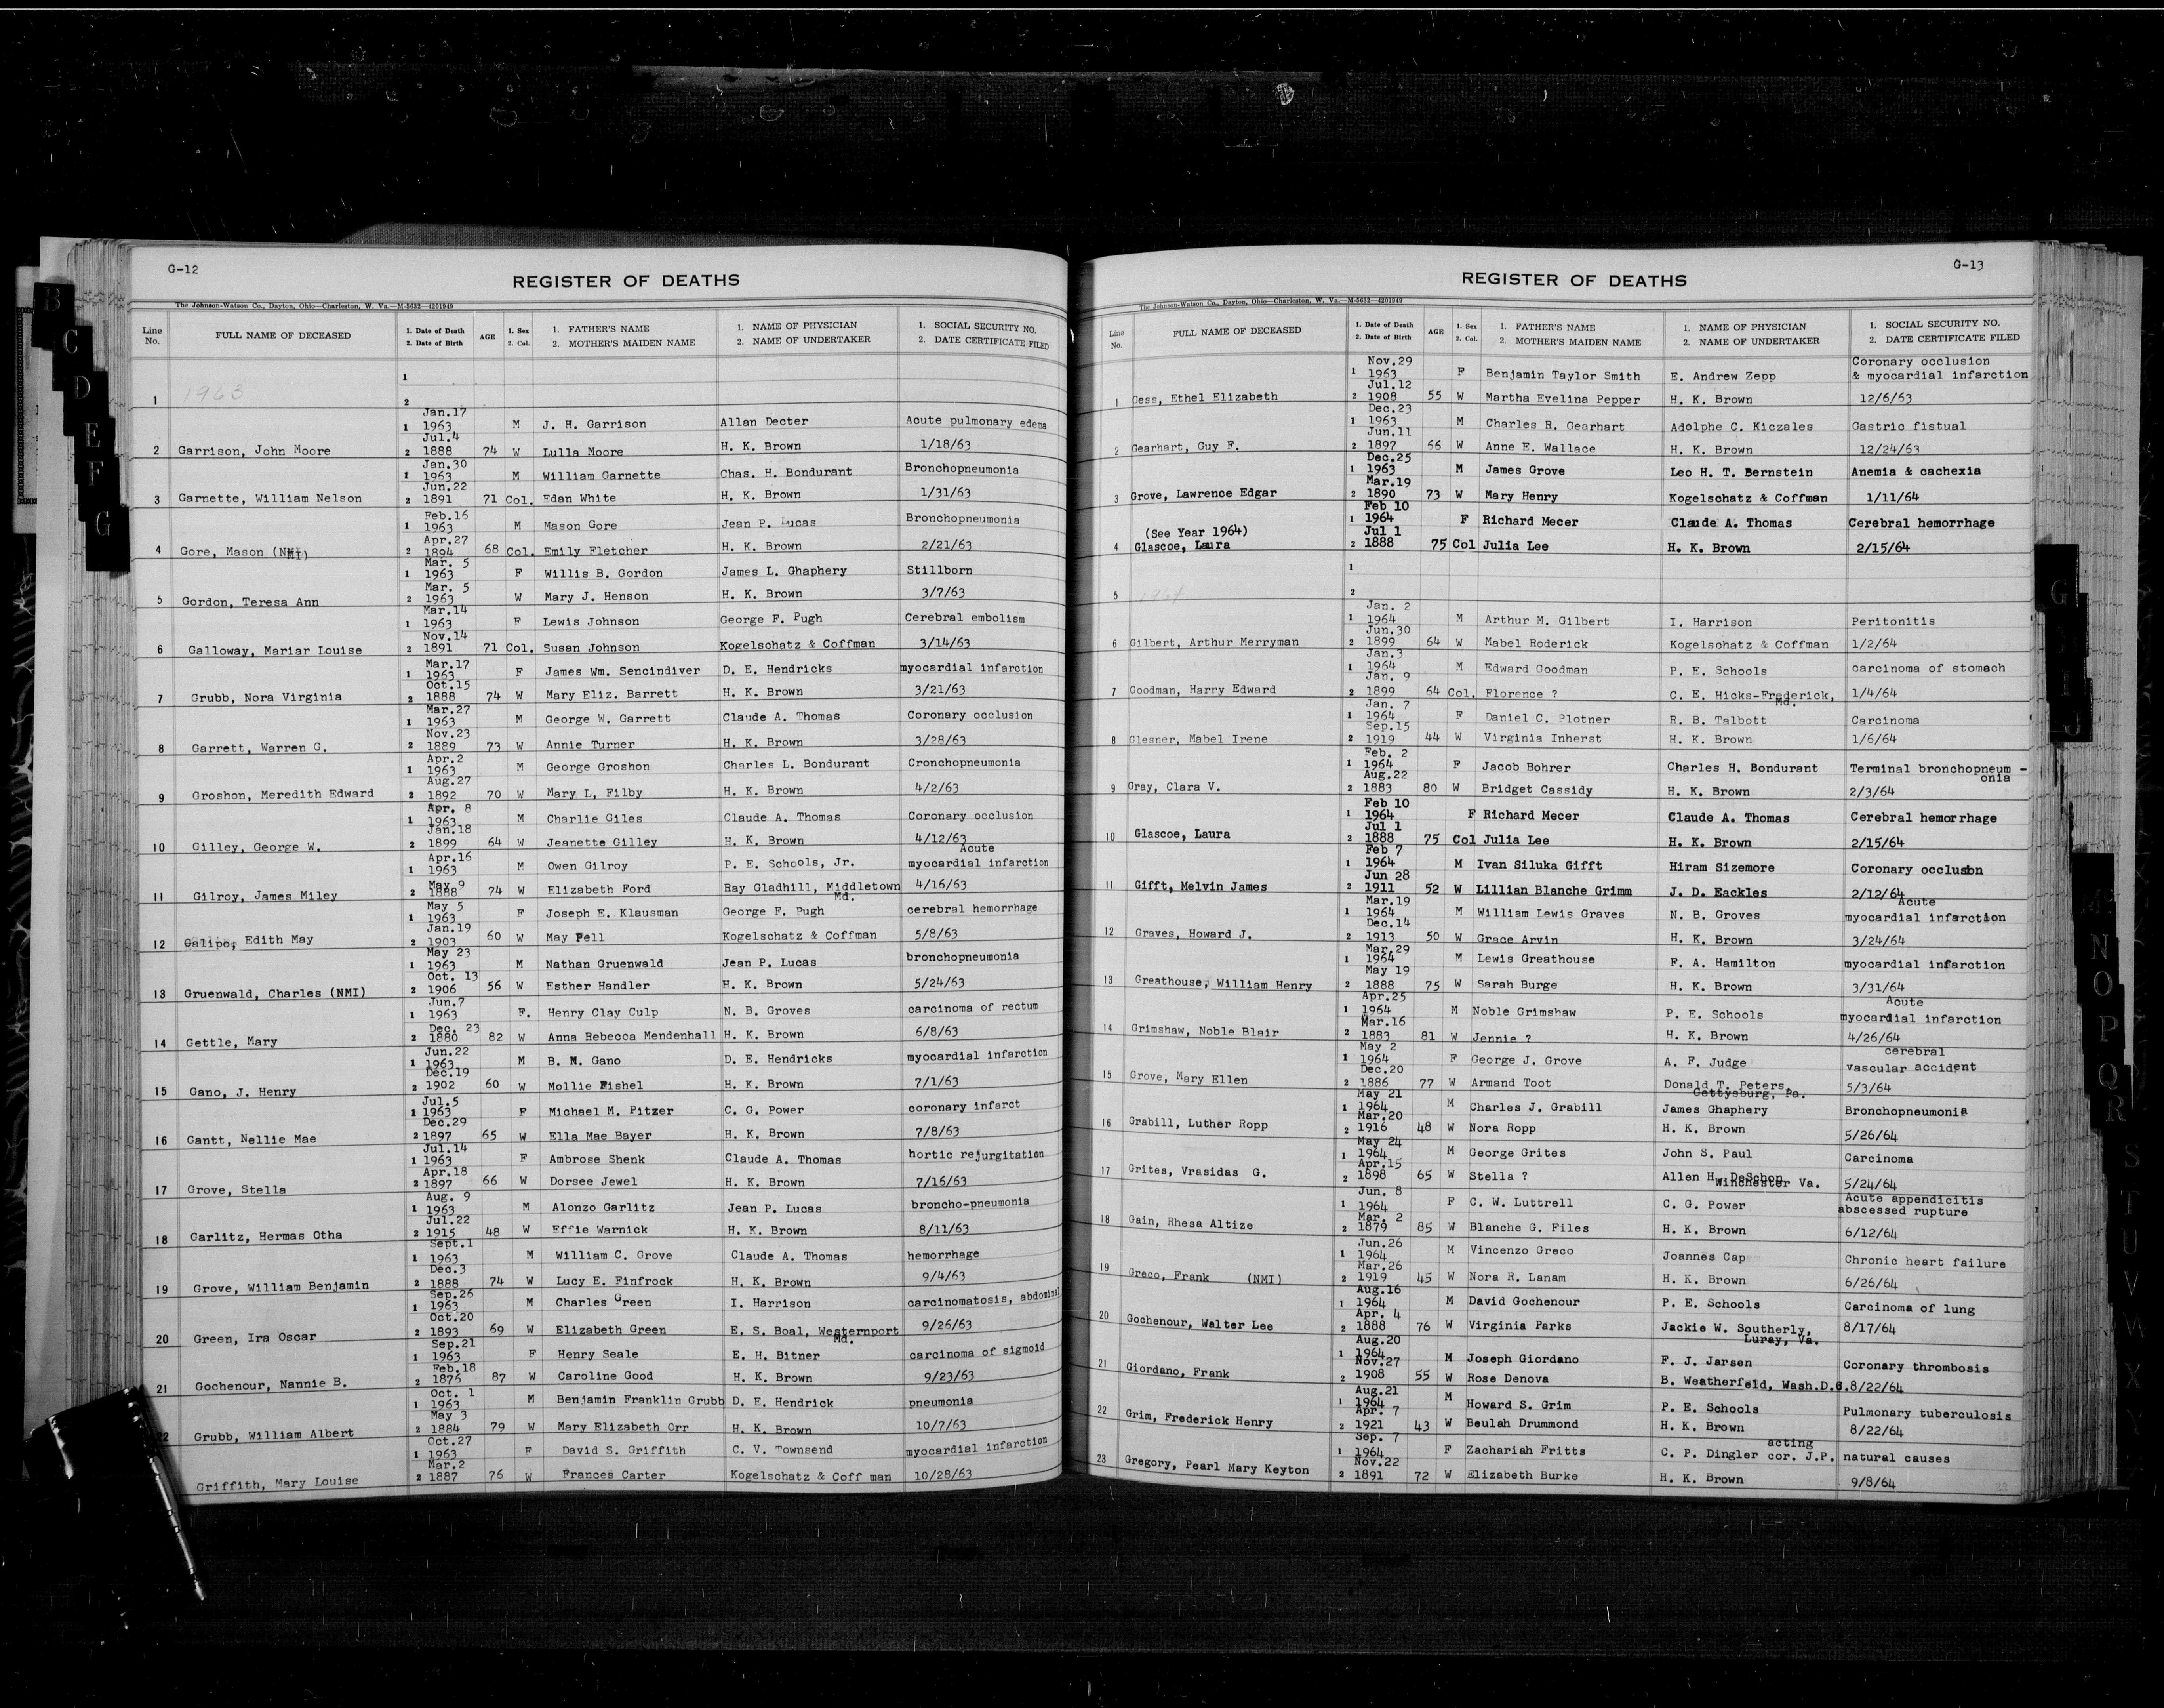 G-12
REGISTER OF DEATHS
The Johnson-Watson Co., Dayton, Ohio—Charleston, W. Va.—M-5632—4201949
Line No. FULL NAME OF DECEASED 1. Date of Death 2. Date of Birth AGE 1. Sex 2. Col. 1. FATHER'S NAME 2. MOTHER'S MAIDEN NAME 1. NAME OF PHYSICIAN 2. NAME OF UNDERTAKER 1. SOCIAL SECURITY NO. 2. DATE CERTIFICATE FILED
1 1963 1 2
Jan.17
1 1963 M J. H. Garrison Allan Decter Acute pulmonary edema
Jul.4
2 Garrison, John Moore 2 1888 74 W Lulla Moore H. K. Brown 1/18/63
Jan.30
1 1963 M William Garnette Chas. H. Bondurant Bronchopneumonia
Jun.22
3 Garnette, William Nelson 2 1891 71 Col. Edan White H. K. Brown 1/31/63
Feb.16
1 1963 M Mason Gore Jean P. Lucas Bronchopneumonia
Apr.27
4 Gore, Mason (NMI) 2 1894 68 Col. Emily Fletcher H. K. Brown 2/21/63
Mar. 5
1 1963 F Willis B. Gordon James L. Ghaphery Stillborn
Mar. 5
5 Gordon, Teresa Ann 2 1963 W Mary J. Henson H. K. Brown 3/7/63
Mar.14
1 1963 F Lewis Johnson George F. Pugh Cerebral embolism
Nov.14
6 Galloway, Mariar Louise 2 1891 71 Col. Susan Johnson Kogelschatz & Coffman 3/14/63
Mar.17
1 1963 F James Wm. Sencindiver D. E. Hendricks myocardial infarction
Oct.15
7 Grubb, Nora Virginia 2 1888 74 W Mary Eliz. Barrett H. K. Brown 3/21/63
Mar.27
1 1963 M George W. Garrett Claude A. Thomas Coronary occlusion
Nov.23
8 Garrett, Warren G. 2 1889 73 W Annie Turner H. K. Brown 3/28/63
Apr.2
1 1963 M George Groshon Charles L. Bondurant Cronchopneumonia
Aug.27
9 Groshon, Meredith Edward 2 1892 70 W Mary L, Filby H. K. Brown 4/2/63
Apr. 8
1 1963 M Charlie Giles Claude A. Thomas Coronary occlusion
Jan.18
10 Gilley, George W. 2 1899 64 W Jeanette Gilley H. K. Brown 4/12/63
Apr.16 Acute
1 1963 M Owen Gilroy P. E. Schools, Jr. myocardial infarction
May 9
11 Gilroy, James Miley 2 1888 74 W Elizabeth Ford Ray Gladhill, Middletown Md. 4/16/63
May 5
1 1963 F Joseph E. Klausman George F. Pugh cerebral hemorrhage
Jan.19
12 Galipo, Edith May 2 1903 60 W May Fell Kogelschatz & Coffman 5/8/63
May 23
1 1963 M Nathan Gruenwald Jean P. Lucas bronchopneumonia
Oct. 13
13 Gruenwald, Charles (NMI) 2 1906 56 W Esther Handler H. K. Brown 5/24/63
Jun.7
1 1963 F. Henry Clay Culp N. B. Groves carcinoma of rectum
Dec. 23
14 Gettle, Mary 2 1880 82 W Anna Rebecca Mendenhall H. K. Brown 6/8/63
Jun.22
1 1963 M B. M. Gano D. E. Hendricks myocardial infarction
Dec.19
15 Gano, J. Henry 2 1902 60 W Mollie Fishel H. K. Brown 7/1/63
Jul.5
1 1963 F Michael M. Pitzer C. G. Power coronary infarct
Dec.29
16 Gantt, Nellie Mae 2 1897 65 W Ella Mae Bayer H. K. Brown 7/8/63
Jul.14
1 1963 F Ambrose Shenk Claude A. Thomas hortic rejurgitation
Apr.18
17 Grove, Stella 2 1897 66 W Dorsee Jewel H. K. Brown 7/16/63
Aug. 9
1 1963 M Alonzo Garlitz Jean P. Lucas broncho-pneumonia
Jul.22
18 Garlitz, Hermas Otha 2 1915 48 W Effie Warnick H. K. Brown 8/11/63
Sept.1
1 1963 M William C. Grove Claude A. Thomas hemorrhage
Dec.3
19 Grove, William Benjamin 2 1888 74 W Lucy E. Finfrock H. K. Brown 9/4/63
Sep.26
1 1963 M Charles Green I. Harrison carcinomatosis, abdominal
Oct.20
20 Green, Ira Oscar 2 1893 69 W Elizabeth Green E. S. Boal, Westernport Md. 9/26/63
Sep.21
1 1963 F Henry Seale E. H. Bitner carcinoma of sigmoid
Feb.18
21 Gochenour, Nannie B. 2 1876 87 W Caroline Good H. K. Brown 9/23/63
Oct. 1
1 1963 M Benjamin Franklin Grubb D. E. Hendrick pneumonia
May 3
22 Grubb, William Albert 2 1884 79 W Mary Elizabeth Orr H. K. Brown 10/7/63
Oct.27
1 1963 F David S. Griffith C. V. Townsend myocardial infarction
Mar.2
Griffith, Mary Louise 2 1887 76 W Frances Carter Kogelschatz & Coff man 10/28/63
G-13
REGISTER OF DEATHS
The Johnson-Watson Co., Dayton, Ohio—Charleston, W. Va.—M-5632—4201949
Line No. FULL NAME OF DECEASED 1. Date of Death 2. Date of Birth AGE 1. Sex 2. Col. 1. FATHER'S NAME 2. MOTHER'S MAIDEN NAME 1. NAME OF PHYSICIAN 2. NAME OF UNDERTAKER 1. SOCIAL SECURITY NO. 2. DATE CERTIFICATE FILED
Nov.29 Coronary occlusion
1 1963 F Benjamin Taylor Smith E. Andrew Zepp & myocardial infarction
Jul.12
1 Gess, Ethel Elizabeth 2 1908 55 W Martha Evelina Pepper H. K. Brown 12/6/63
Dec.23
1 1963 M Charles R. Gearhart Adolphe C. Kiczales Gastric fistual
Jun.11
2 Gearhart, Guy F. 2 1897 66 W Anne E. Wallace H. K. Brown 12/24/63
Dec.25
1 1963 M James Grove Leo H. T. Bernstein Anemia & cachexia
Mar.19
3 Grove, Lawrence Edgar 2 1890 73 W Mary Henry Kogelschatz & Coffman 1/11/64
Feb 10
1 1964 F Richard Mecer Claude A. Thomas Cerebral hemorrhage
(See Year 1964) Jul 1
4 Glascoe, Laura 2 1888 75 Col Julia Lee H. K. Brown 2/15/64
1
5 1964 2
Jan. 2
1 1964 M Arthur M. Gilbert I. Harrison Peritonitis
Jun.30
6 Gilbert, Arthur Merryman 2 1899 64 W Mabel Roderick Kogelschatz & Coffman 1/2/64
Jan.3
1 1964 M Edward Goodman P. E. Schools carcinoma of stomach
Jan. 9
7 Goodman, Harry Edward 2 1899 64 Col. Florence ? C. E. Hicks-Frederick, Md. 1/4/64
Jan. 7
1 1964 F Daniel C. Plotner R. B. Talbott Carcinoma
Sep.15
8 Glesner, Mabel Irene 2 1919 44 W Virginia Inherst H. K. Brown 1/6/64
Feb. 2
1 1964 F Jacob Bohrer Charles H. Bondurant Terminal bronchopneum -
Aug.22 onia
9 Gray, Clara V. 2 1883 80 W Bridget Cassidy H. K. Brown 2/3/64
Feb 10
1 1964 F Richard Mecer Claude A. Thomas Cerebral hemorrhage
Jul 1
10 Glascoe, Laura 2 1888 75 Col Julia Lee H. K. Brown 2/15/64
Feb 7
1 1964 M Ivan Siluka Gifft Hiram Sizemore Coronary occlusion
Jun 28
11 Gifft, Melvin James 2 1911 52 W Lillian Blanche Grimm J. D. Eackles 2/12/64
Mar.19 Acute
1 1964 M William Lewis Graves N. B. Groves myocardial infarction
Dec.14
12 Graves, Howard J. 2 1913 50 W Grace Arvin H. K. Brown 3/24/64
Mar,29
1 1964 M Lewis Greathouse F. A. Hamilton myocardial infarction
May 19
13 Greathouse, William Henry 2 1888 75 W Sarah Burge H. K. Brown 3/31/64
Apr.25 Acute
1 1964 M Noble Grimshaw P. E. Schools myocardial infarction
Mar.16
14 Grimshaw, Noble Blair 2 1883 81 W Jennie ? H. K. Brown 4/26/64
May 2 cerebral
1 1964 F George J. Grove A. F. Judge vascular accident
Dec.20
15 Grove, Mary Ellen 2 1886 77 W Armand Toot Donald T. Peters, Gettysburg, Pa. 5/3/64
May 21
1 1964 M Charles J. Grabill James Ghaphery Bronchopneumonia
Mar.20
16 Grabill, Luther Ropp 2 1916 48 W Nora Ropp H. K. Brown 5/26/64
May 24
1 1964 M George Grites John S. Paul Carcinoma
Apr.15
17 Grites, Vrasidas G. 2 1898 65 W Stella ? Allen H. DeSchon Winchester Va. 5/24/64
Jun. 8 Acute appendicitis
1 1964 F C. W. Luttrell C. G. Power abscessed rupture
Mar. 2
18 Gain, Rhesa Altize 2 1879 85 W Blanche G. Files H. K. Brown 6/12/64
Jun.26
1 1964 M Vincenzo Greco Joannes Cap Chronic heart failure
Mar.26
19 Greco, Frank (NMI) 2 1919 45 W Nora R. Lanam H. K. Brown 6/26/64
Aug.16
1 1964 M David Gochenour P. E. Schools Carcinoma of lung
Apr. 4
20 Gochenour, Walter Lee 2 1888 76 W Virginia Parks Jackie W. Southerly, Luray, Va. 8/17/64
Aug.20
1 1964 M Joseph Giordano F. J. Jarsen Coronary thrombosis
Nov.27
21 Giordano, Frank 2 1908 55 W Rose Denova B. Weatherfeld, Wash.D.C. 8/22/64
Aug.21
1 1964 M Howard S. Grim P. E. Schools Pulmonary tuberculosis
Apr. 7
22 Grim, Frederick Henry 2 1921 43 W Beulah Drummond H. K. Brown 8/22/64
Sep. 7 acting
1 1964 F Zachariah Fritts C. P. Dingler cor. J.P. natural causes
Nov.22
23 Gregory, Pearl Mary Keyton 2 1891 72 W Elizabeth Burke H. K. Brown 9/8/64
B
C
D
E
F
G
G
H
I
J
N
O
P
Q
R
S
T
U
V
W
X
Y